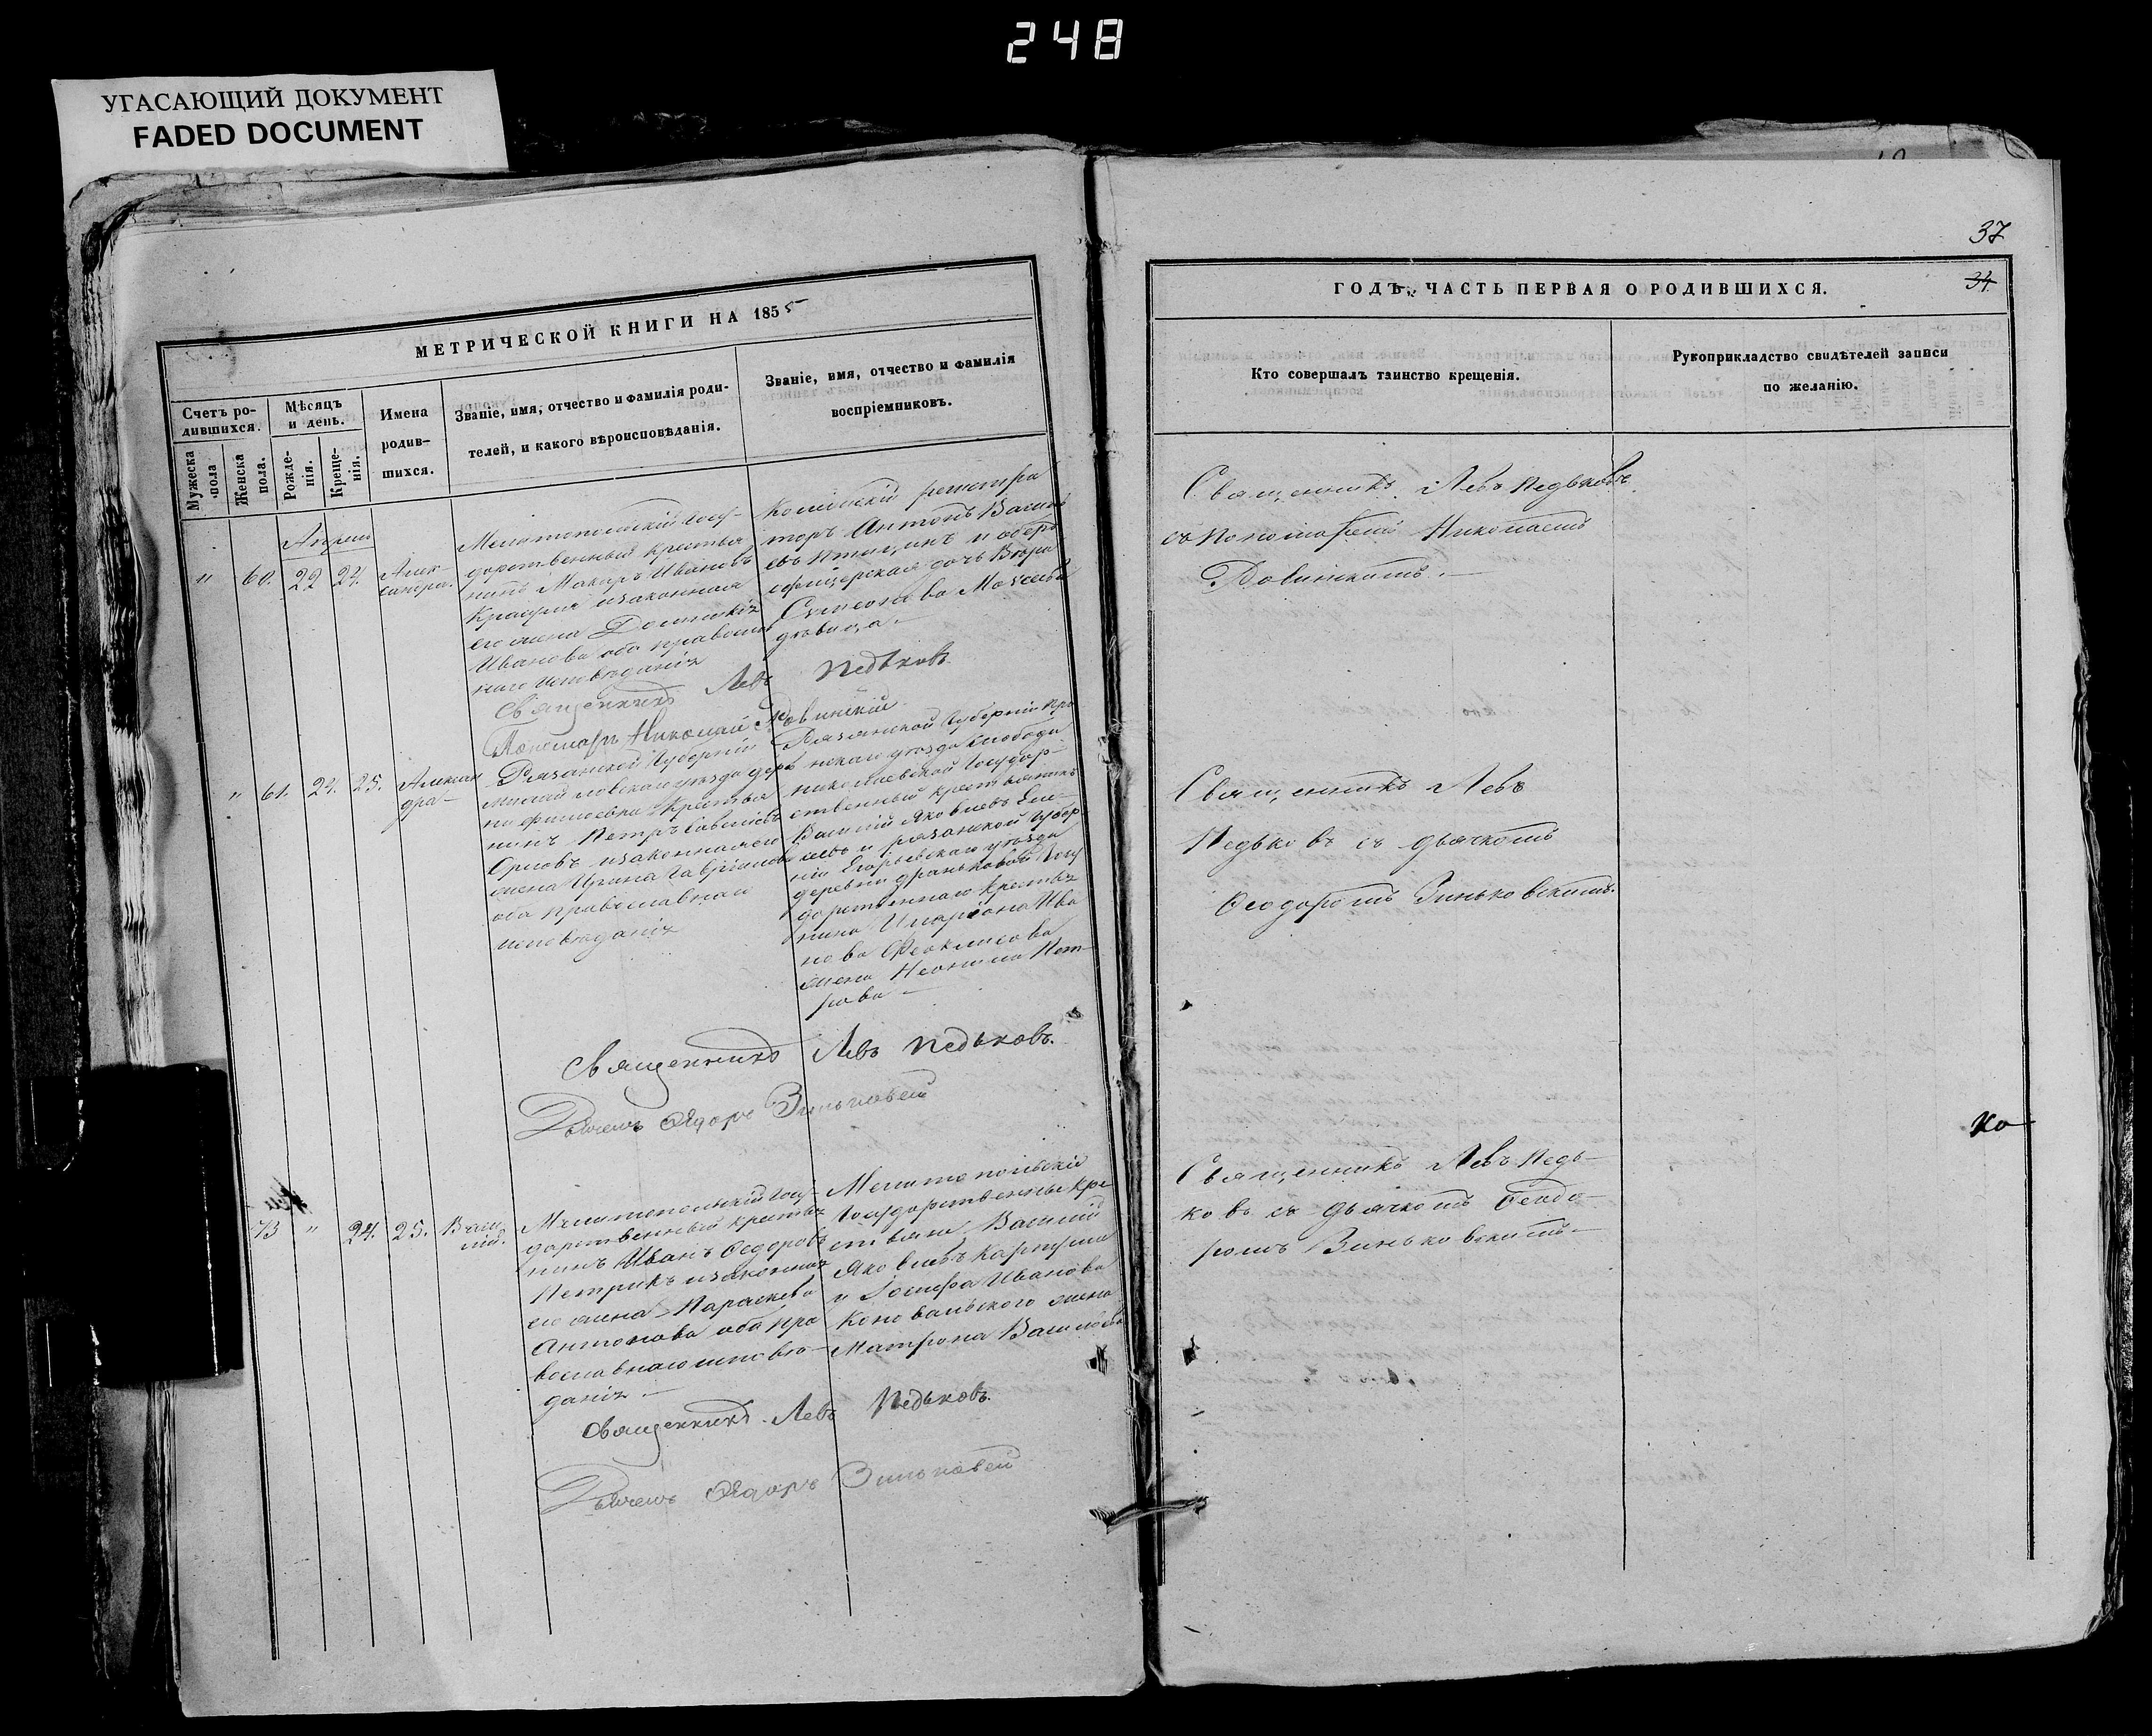 248
УГАСАЮЩИЙ ДОКУМЕНТ
FADED DOCUMENT
МЕТРИЧЕСКОЙ КНИГИ НА 1855
Счетъ ро-
дившихся.
Мѣсяцъ
и день.
Имена
родив-
шихся.
Званіе, имя, отчество и фамилія роди-
телей, и какого вѣроисповѣданія.
Званіе, имя, отчество и фамилія
воспріемниковъ.
Мужеска
пола
Женска
пола.
Рожде-
нія.
Креще-
нія.
Апрель
" 60. 22 24. Алек-
сандра.
Мелитопольскій госу-
дарственный крестья
нинъ Макаръ Ивановъ
изаконная
его жена
Иванова оба православ
наго исповѣданія
регистра
торъ Антонъ Васильe
въ и оберъ
офицерская дочь Вѣра
Симеонова
дѣвица.
Священникъ Левъ Педьковъ
Пономарь Николай Довинскій
" 61. 24. 25. Алексан
дра-
Рязанской Губерніи
Михайловскаго уѣзда дерѣ
ни крестья
нинъ Петръ Савельевъ
Орловъ изаконная его
жена Ирина Гавріилова
оба православнаго
исповѣданія
Рязанской губерніи Про
нскаго уѣзда Слободы
николаевской Государ-
ственный крестьянинъ
Василій Яковлевъ
и рязанской Губер
ніи Егорьевскаго уѣзда
деревни Госу
дарственнаго крестья
нина Иларіона Ива
нова
жена Неонила Пет-
рова -
Священникъ Левъ Педьковъ.
Дьячекъ Ѳедоръ Зиньковскій
73 " 24. 25. Васи
лій.
Мелитопольскій Госу-
дарственный крестья
нинъ Иванъ Ѳедоровъ
Петрикъ изаконная
его жена Параскева
Антонова оба пра
вославнаго исповѣ-
данія -
Мелитопольскіе
Государственные кре
стьяне Василій
Яковлевъ
и Іосифа Иванова
Коновальского жена
Матрона Васильева
Священникъ Левъ Педьковъ.
Дьячекъ Ѳедоръ Зиньковскій
37
34.
ГОДЪ, ЧАСТЬ ПЕРВАЯ О РОДИВШИХСЯ.
Кто совершалъ таинство крещенія.
Рукоприкладство свидѣтелей записи
по желанію.
Священникъ Левъ Педьковъ
съ Пономаремъ Николаемъ
Довинскимъ.-
Священникъ Левъ
Педьковъ съ дьячкомъ
Ѳеодоромъ Зиньковскимъ.
Священникъ Левъ Педь-
ковъ съ дьячкомъ Ѳеодо-
ромъ Зиньковскимъ-